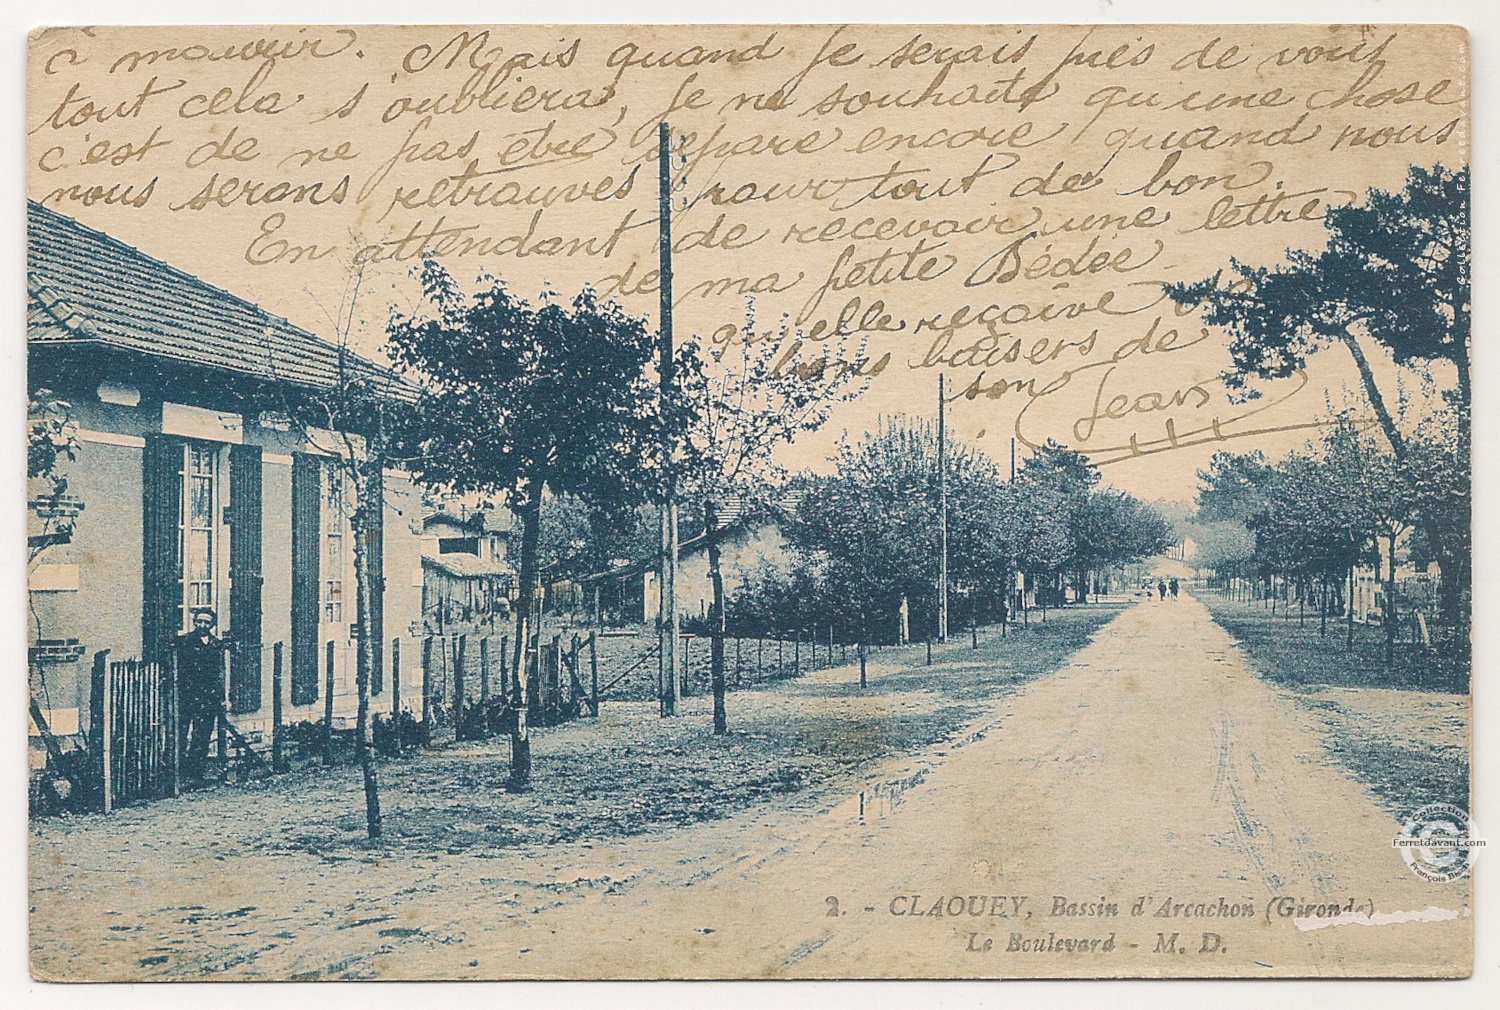 à mourir. Mais quand je serais près de vous
tout cela s'oubliera, je ne souhaite qu'une chose
c'est de ne pas être séparé encore quand nous
nous serons retrouvés pour tout de bon.
En attendant de recevoir une lettre
de ma petite Dédée
qu'elle reçoive de
bons baisers de
son Jean
2. - CLAOUEY, Bassin d'Arcachon (Gironde)
Le Boulevard - M. D.
Collection Ferretdavant.com
Collection
Ferretdavant.com
François Bisch